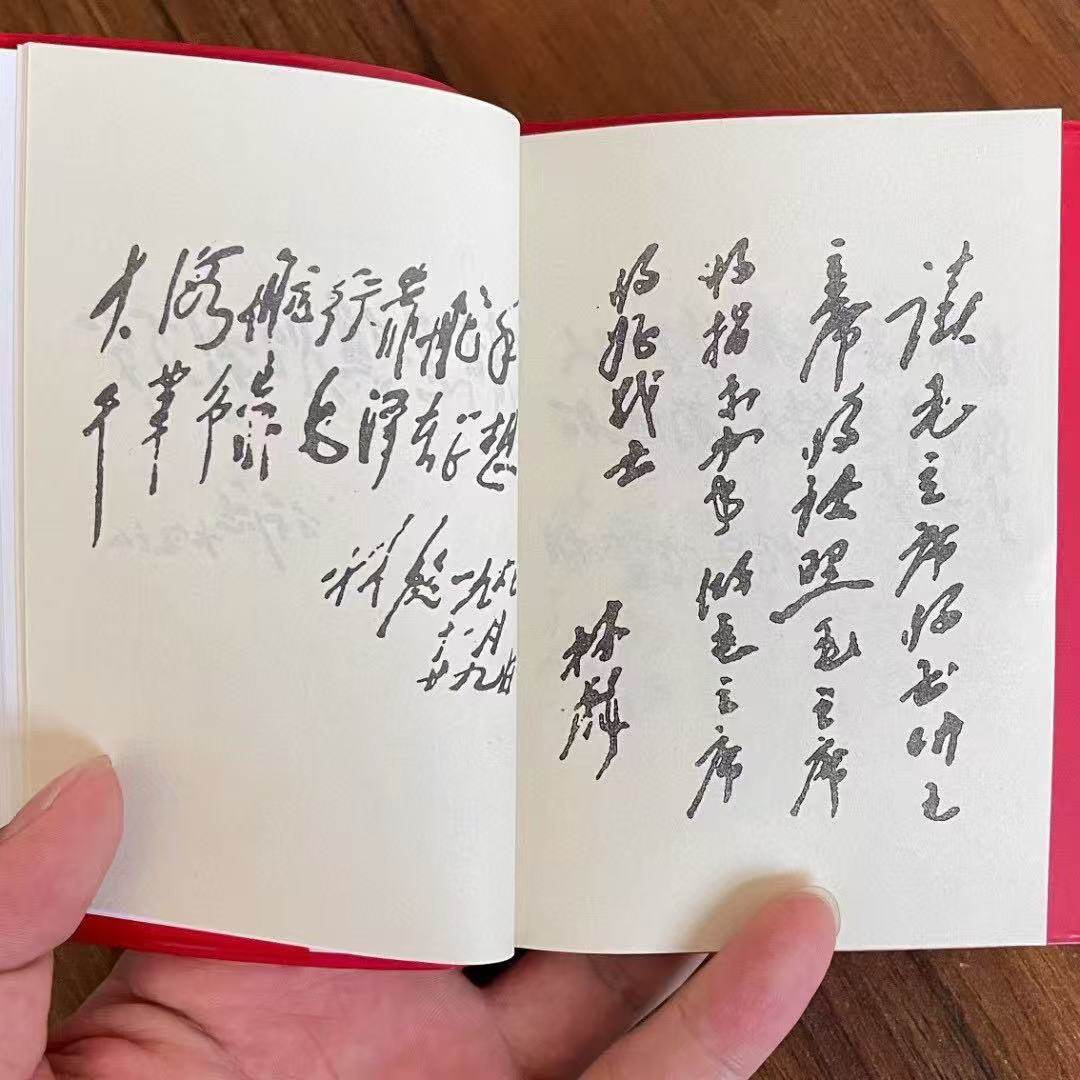 大海航行靠舵手
干革命靠毛泽东思想
林彪 一九六
十一月
廿九日
读毛主席的书听毛
主席的话照毛主席
的指示办事做毛主席
的好战士
林彪